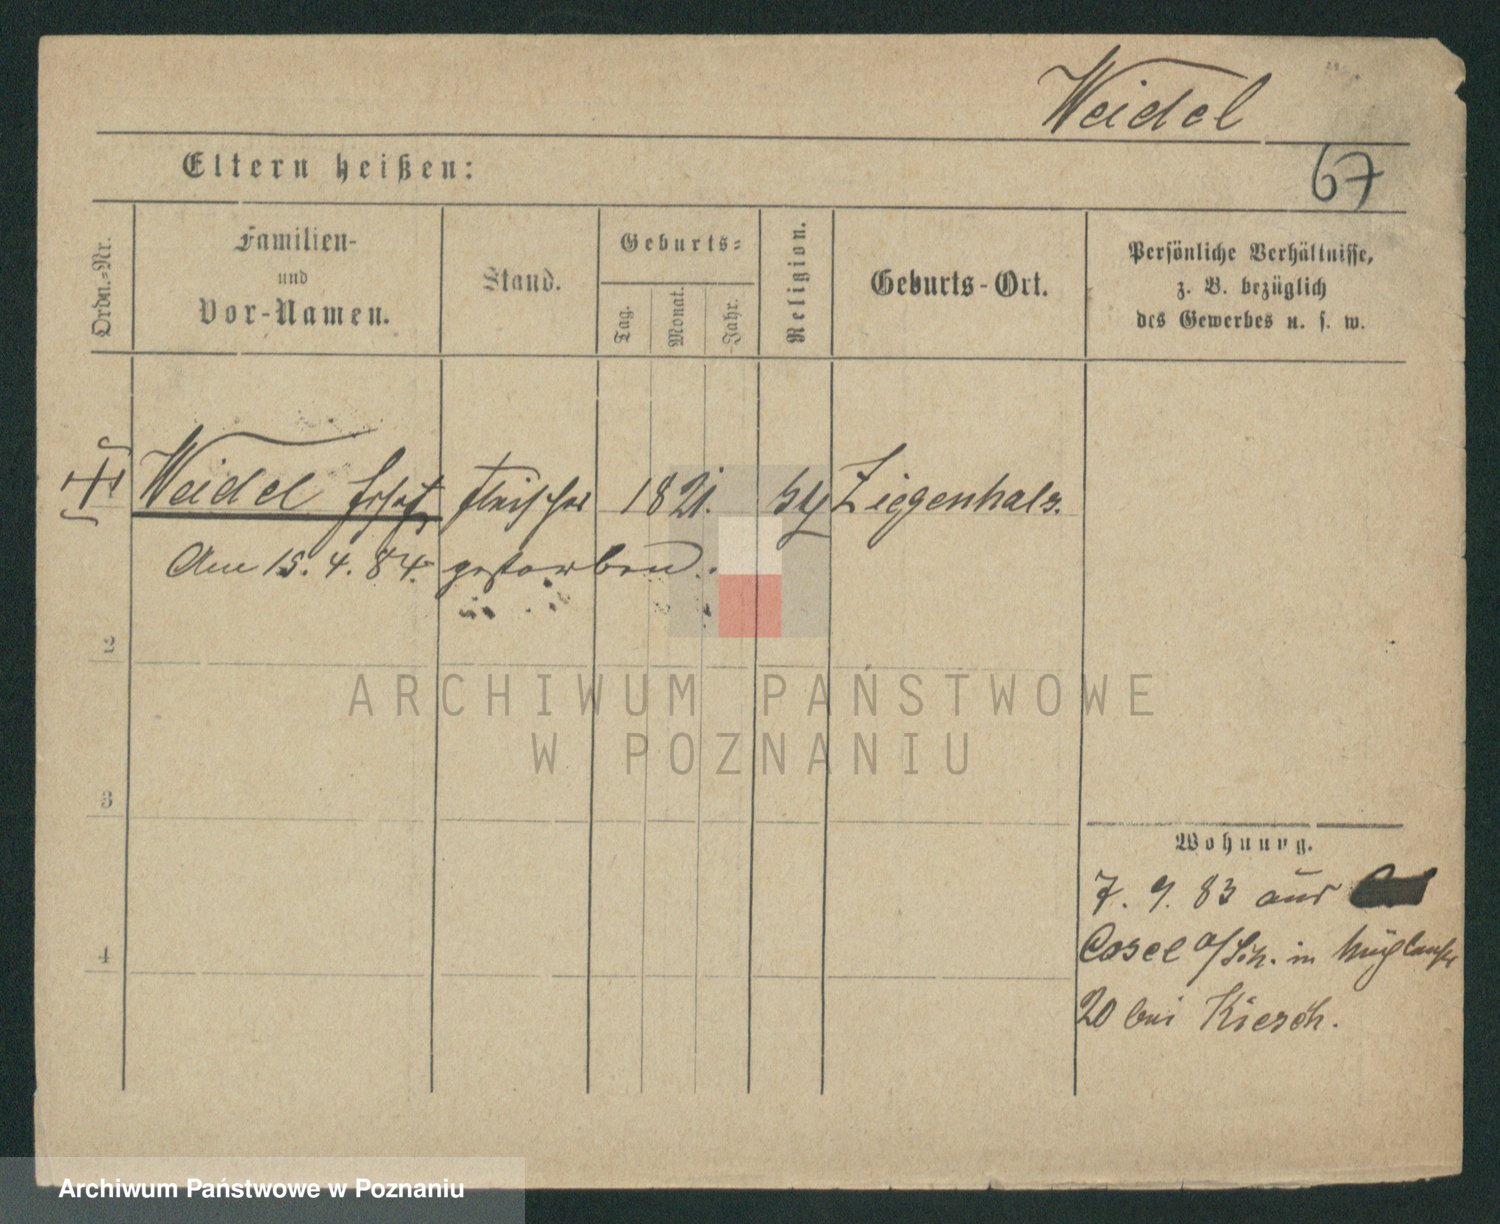 Weidel
67
Eltern heißen:
Ordn.=Nr.
Familien-
und
Vor-Namen.
Stand.
Geburts=
Tag.
Monat.
Jahr.
Religion.
Geburts-Ort.
Persönliche Verhältnisse,
z. B. bezüglich
des Gewerbes u. s. w.
Weidel Fleischer 1821. Ziegenhals.
Am 15. 4. 84. gestorben.
2
3
4
ARCHIWUM PAŃSTWOWE
W POZNANIU
Wohnung.
7. 9. 83 aus
Cosel o/Sch. in
20 bei Kiesch.
Archiwum Państwowe w Poznaniu